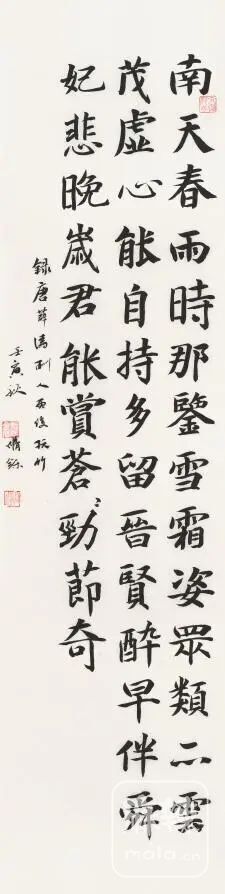 南天春雨時那鑒雪霜姿眾類亦雲
茂虛心能自持多留晉賢醉早伴舜
妃悲晚歲君能賞蒼〻勁節奇
錄唐薛濤酬人雨後玩竹
壬寅秋
mala.cn